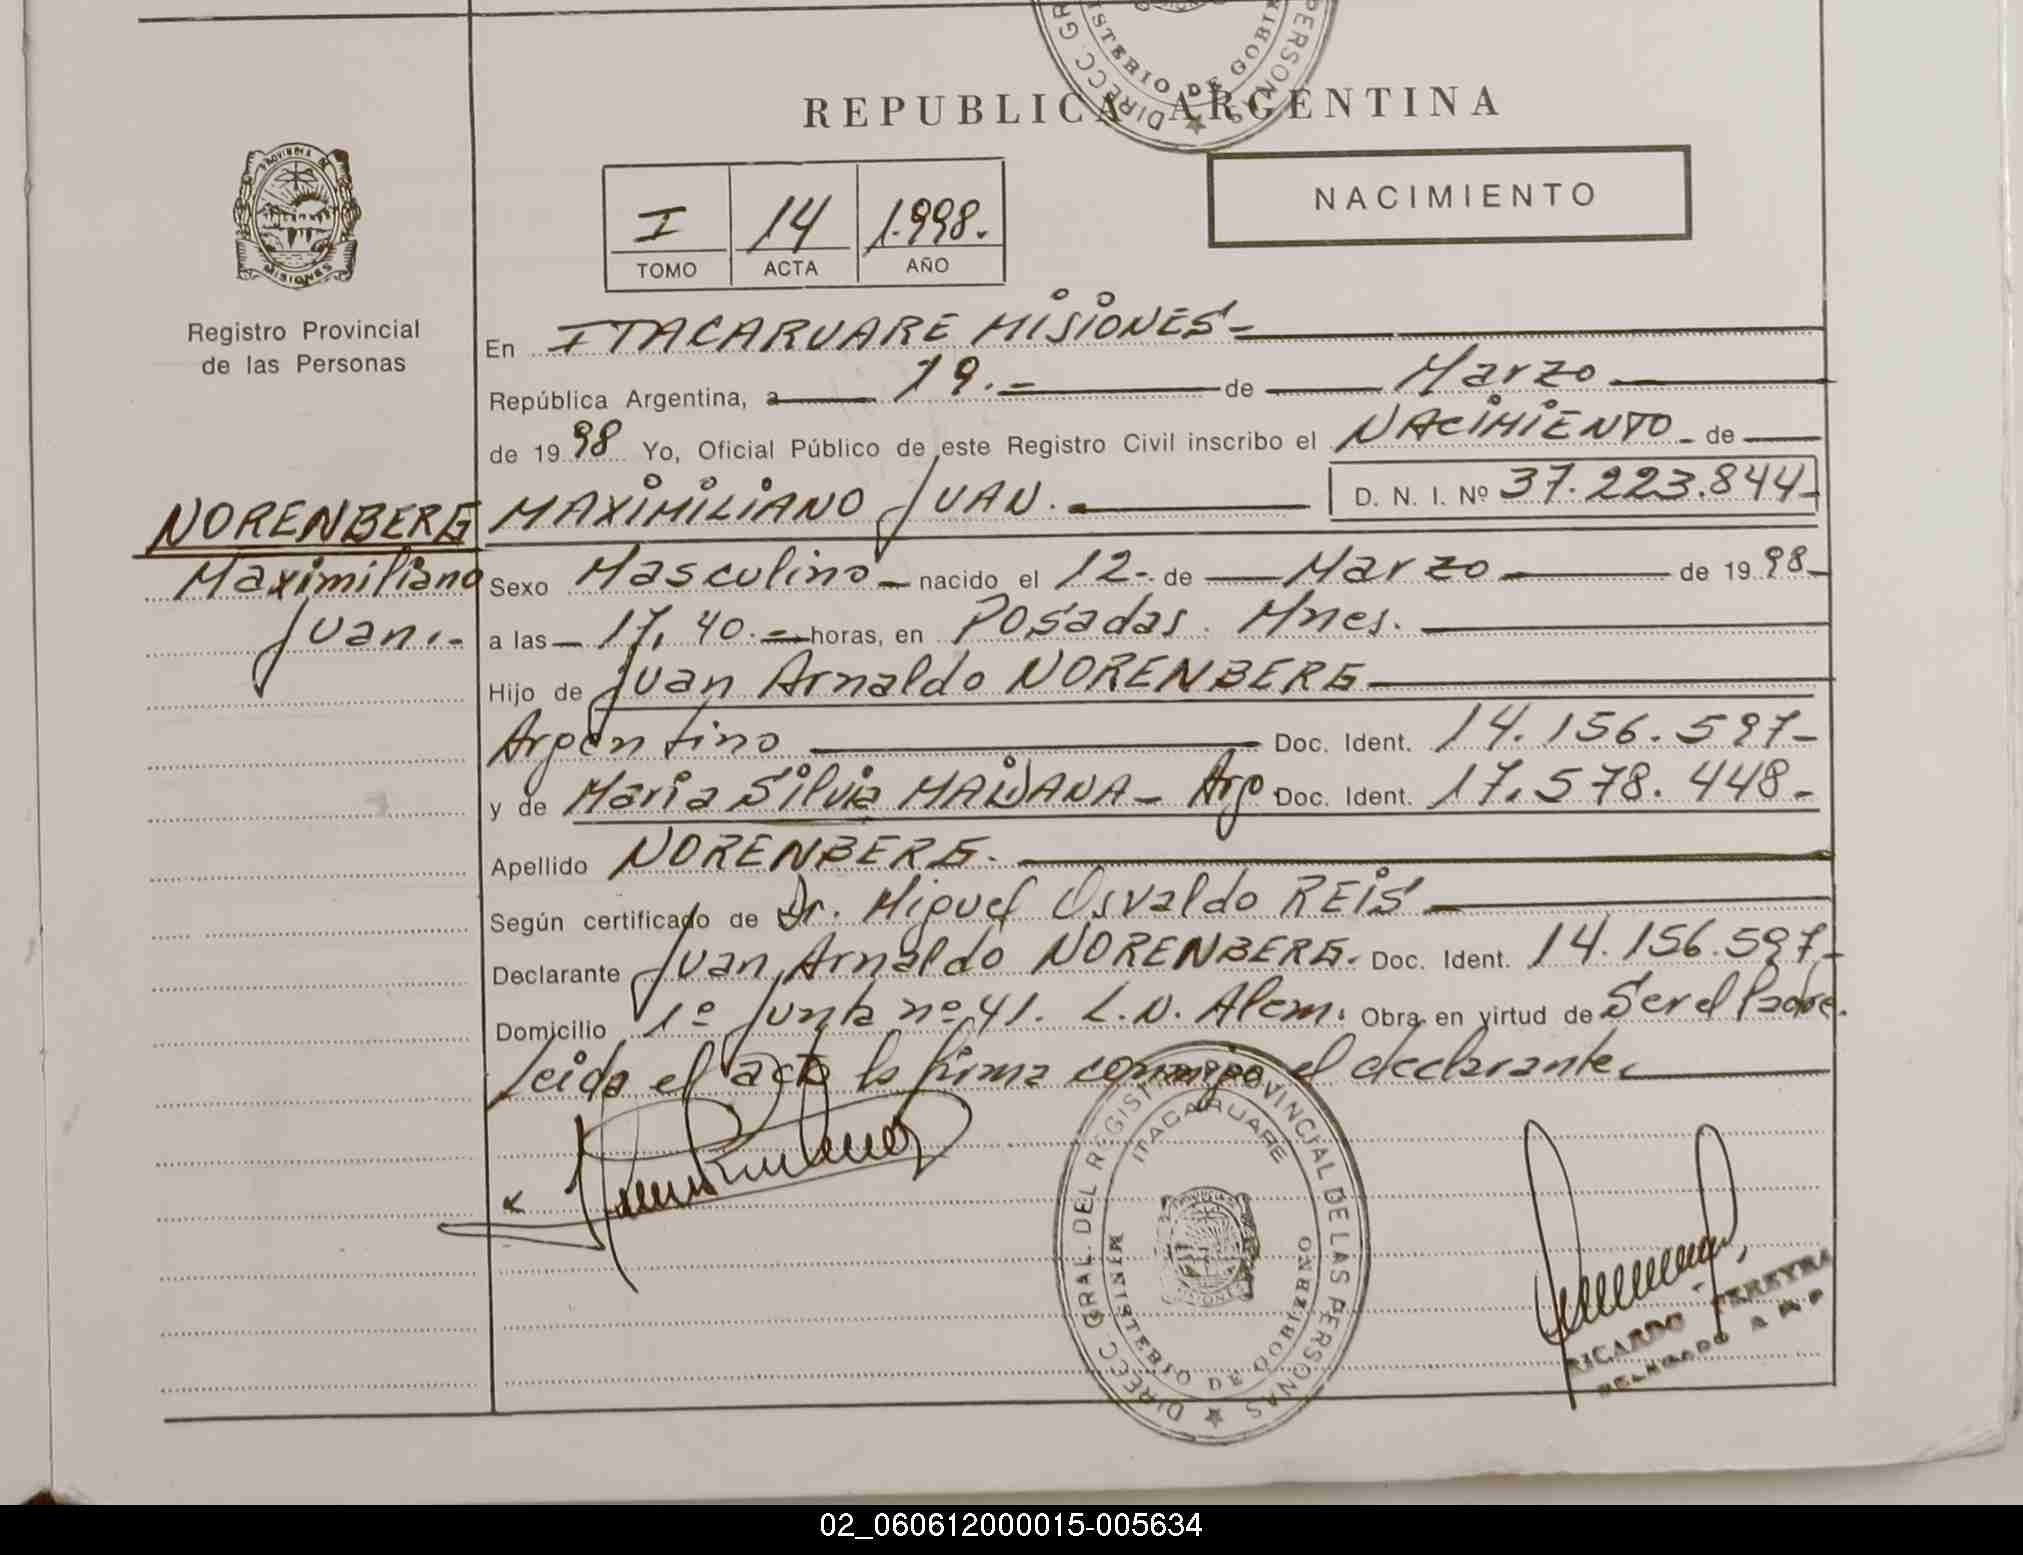 REPUBLICA ARGENTINA
DIRECC GR
PERSONAS
ISTERIO DE GOBI
PROVINCIA DE
MISIONES
Registro Provincial
de las Personas
I 14 1.998.
TOMO ACTA AÑO
NACIMIENTO
En ITACARUARE MISIONES-
República Argentina, a 19.- de Marzo
de 1998 Yo, Oficial Público de este Registro Civil inscribo el NACIMIENTO de
NORENBERG MAXIMILIANO JUAN. D. N. I. Nº 37.223.844-
Maximiliano
Juan.-
Sexo Masculino nacido el 12- de Marzo de 1998-
a las 17,40.- horas, en Posadas. Mnes.
Hijo de Juan Arnaldo NORENBERG
Argentino Doc. Ident. 14.156.597-
y de Maria Silvia MAIDANA- Arg Doc. Ident. 17.578.448-
Apellido NORENBERG.
Según certificado de Dr. Miguel Osvaldo REIS
Declarante Juan Arnaldo NORENBERG. Doc. Ident. 14.156.597-
Domicilio 1º Junta nº 41. L.N. Alem. Obra en virtud de Ser el Padre.
Leida el acta la firma conmigo el declarante.
DIRECC GRAL DEL REGISTRO PROVINCIAL DE LAS PERSONAS
ITACARUARE
MINISTERIO DE GOBIERNO
RICARDO PEREYRA
02_060612000015-005634